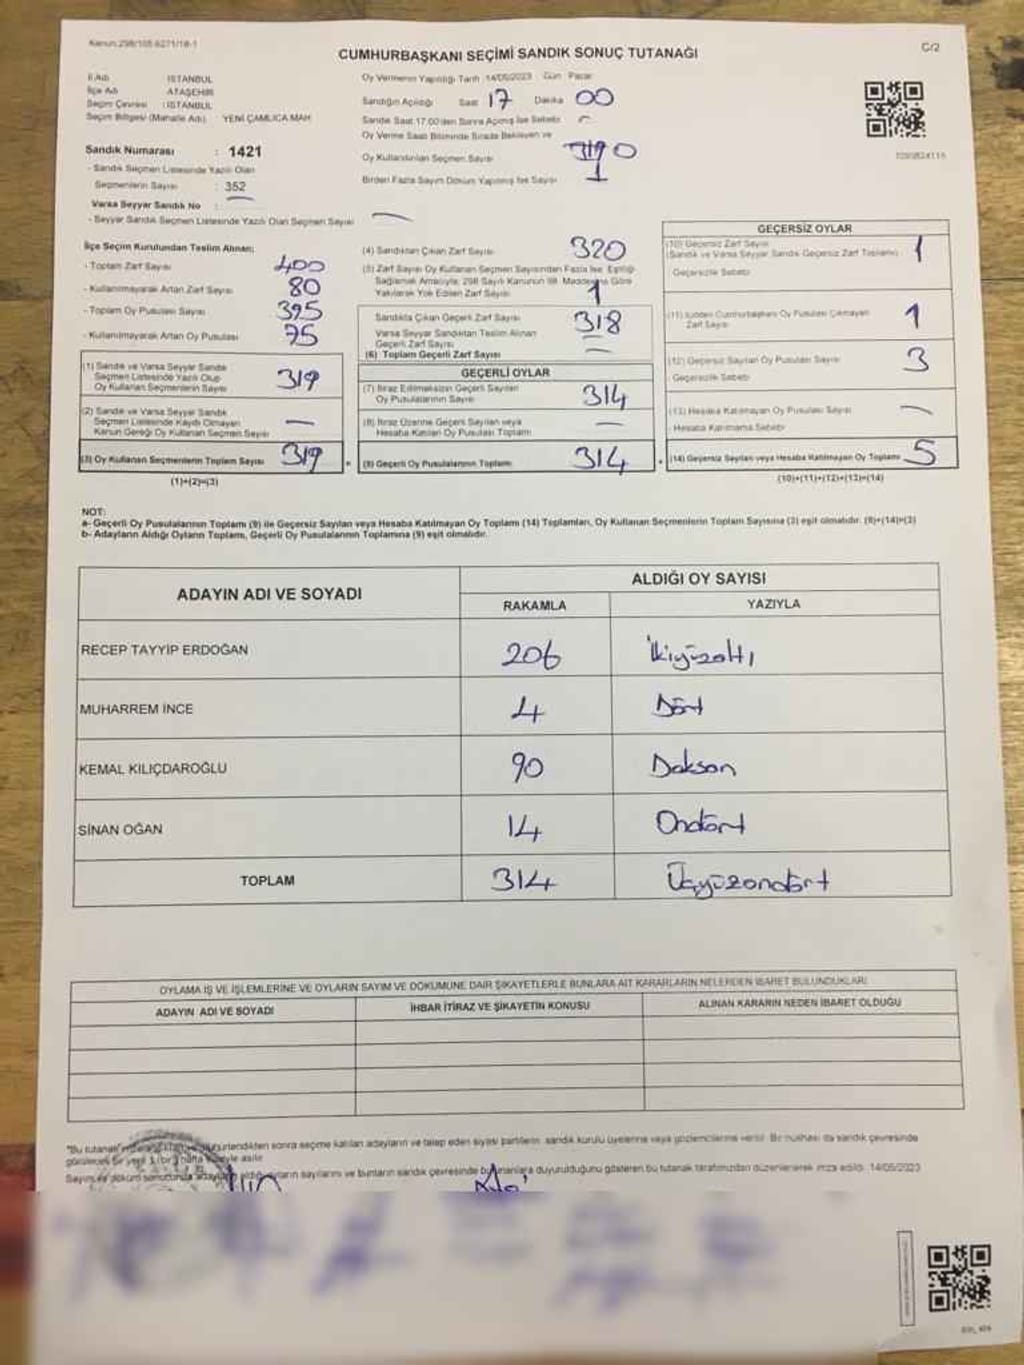 Kanun:298/105 6271/18-1
C/2
CUMHURBAŞKANI SEÇİMİ SANDIK SONUÇ TUTANAĞI
İl Adı : İSTANBUL
İlçe Adı : ATAŞEHİR
Seçim Çevresi : İSTANBUL
Seçim Bölgesi (Mahalle Adı) : YENİ ÇAMLICA MAH
Sandık Numarası : 1421
- Sandık Seçmen Listesinde Yazılı Olan
Seçmenlerin Sayısı : 352
Varsa Seyyar Sandık No : —
- Seyyar Sandık Seçmen Listesinde Yazılı Olan Seçmen Sayısı —
Oy Vermenin Yapıldığı Tarih : 14/05/2023 Gün : Pazar
Sandığın Açıldığı Saat 17 Dakika 00
Sandık Saat 17:00'den Sonra Açılmış İse Sebebi —
Oy Verme Saati Bitiminde Sırada Bekleyen ve
Oy Kullandırılan Seçmen Sayısı
Birden Fazla Sayım Döküm Yapılmış İse Sayısı 1
İlçe Seçim Kurulundan Teslim Alınan;
- Toplam Zarf Sayısı 400
- Kullanılmayarak Artan Zarf Sayısı 80
- Toplam Oy Pusulası Sayısı 395
- Kullanılmayarak Artan Oy Pusulası 75
(1) Sandık ve Varsa Seyyar Sandık
Seçmen Listesinde Yazılı Olup
Oy Kullanan Seçmenlerin Sayısı 319
(2) Sandık ve Varsa Seyyar Sandık
Seçmen Listesinde Kaydı Olmayan
Kanun Gereği Oy Kullanan Seçmen Sayısı —
(3) Oy Kullanan Seçmenlerin Toplam Sayısı 319
(1)+(2)=(3)
(4) Sandıktan Çıkan Zarf Sayısı 320
(5) Zarf Sayısı Oy Kullanan Seçmen Sayısından Fazla İse, Eşitliği
Sağlamak Amacıyla; 298 Sayılı Kanunun 98. Maddesine Göre
Yakılarak Yok Edilen Zarf Sayısı 1
Sandıkta Çıkan Geçerli Zarf Sayısı 318
Varsa Seyyar Sandıktan Teslim Alınan
Geçerli Zarf Sayısı —
(6) Toplam Geçerli Zarf Sayısı
GEÇERLİ OYLAR
(7) İtiraz Edilmeksizin Geçerli Sayılan
Oy Pusulalarının Sayısı 314
(8) İtiraz Üzerine Geçerli Sayılan veya
Hesaba Katılan Oy Pusulası Toplamı —
(9) Geçerli Oy Pusulalarının Toplamı 314
GEÇERSİZ OYLAR
(10) Geçersiz Zarf Sayısı
(Sandık ve Varsa Seyyar Sandık Geçersiz Zarf Toplamı) 1
Geçersizlik Sebebi:
(11) İçinden Cumhurbaşkanı Oy Pusulası Çıkmayan
Zarf Sayısı 1
(12) Geçersiz Sayılan Oy Pusulası Sayısı 3
- Geçersizlik Sebebi:
(13) Hesaba Katılmayan Oy Pusulası Sayısı —
- Hesaba Katılmama Sebebi:
(14) Geçersiz Sayılan veya Hesaba Katılmayan Oy Toplamı 5
(10)+(11)+(12)+(13)=(14)
NOT:
a- Geçerli Oy Pusulalarının Toplamı (9) ile Geçersiz Sayılan veya Hesaba Katılmayan Oy Toplamı (14) Toplamları, Oy Kullanan Seçmenlerin Toplam Sayısına (3) eşit olmalıdır. (9)+(14)=(3)
b- Adayların Aldığı Oyların Toplamı, Geçerli Oy Pusulalarının Toplamına (9) eşit olmalıdır.
ADAYIN ADI VE SOYADI
ALDIĞI OY SAYISI
RAKAMLA YAZIYLA
RECEP TAYYİP ERDOĞAN 206 İkiyüzaltı
MUHARREM İNCE 4 Dört
KEMAL KILIÇDAROĞLU 90 Doksan
SİNAN OĞAN 14 Ondört
TOPLAM 314 Üçyüzondört
OYLAMA İŞ VE İŞLEMLERİNE VE OYLARIN SAYIM VE DÖKÜMÜNE DAİR ŞİKAYETLERLE BUNLARA AİT KARARLARIN NELERDEN İBARET BULUNDUKLARI
ADAYIN ADI VE SOYADI İHBAR İTİRAZ VE ŞİKAYETİN KONUSU ALINAN KARARIN NEDEN İBARET OLDUĞU
"Bu tutanak sonra seçime katılan adayların ve talep eden siyasi partilerin sandık kurulu üyelerine veya gözlemcilerine verilir. Bir nüshası da sandık çevresinde
görülecek bir yere 1 (bir) hafta süreyle asılır.
Sayım ve döküm sonucunda adayların aldığı oyların sayılarını ve bunların sandık çevresinde bulunanlara duyurulduğunu gösteren bu tutanak tarafımızdan düzenlenerek imza edildi. 14/05/2023